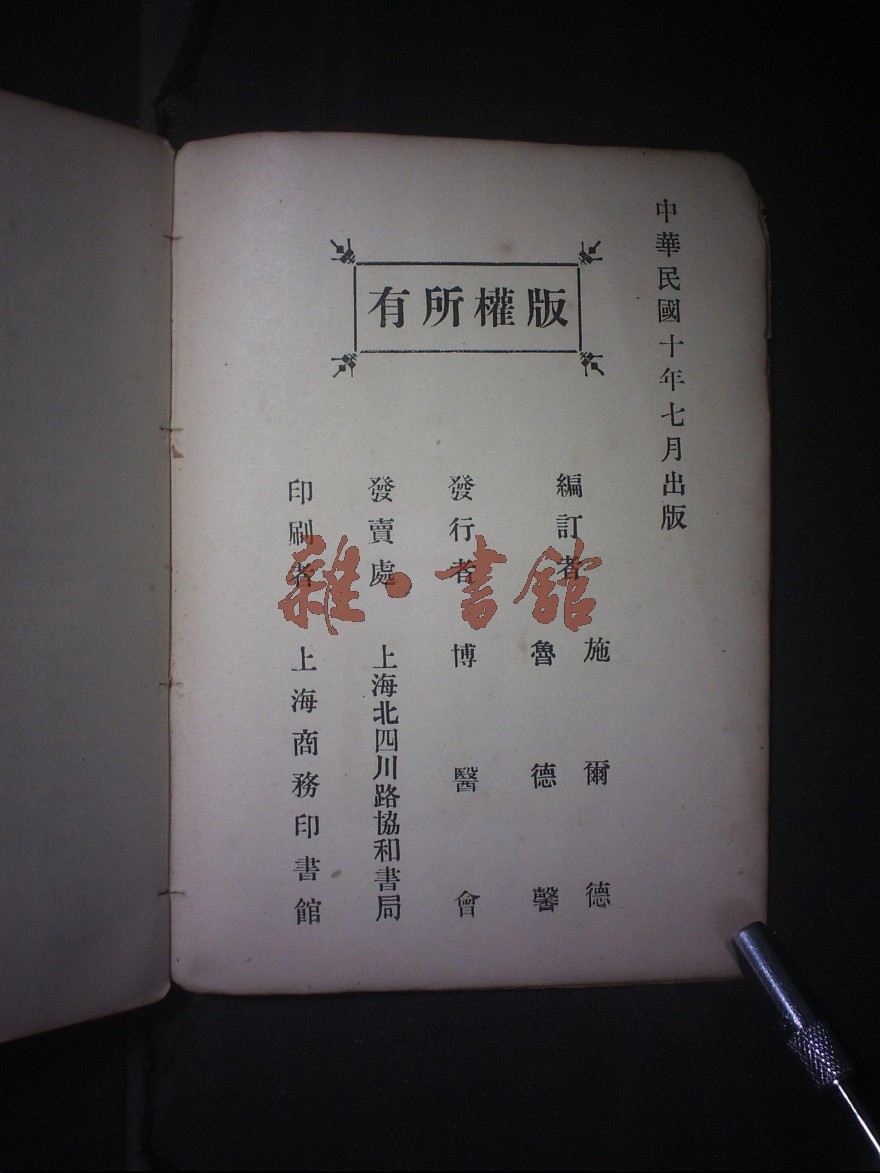 中華民國十年七月出版
版權所有
編訂者 施爾德
魯德馨
發行者 博醫會
發賣處 上海北四川路協和書局
印刷者 上海商務印書館
雜·書館